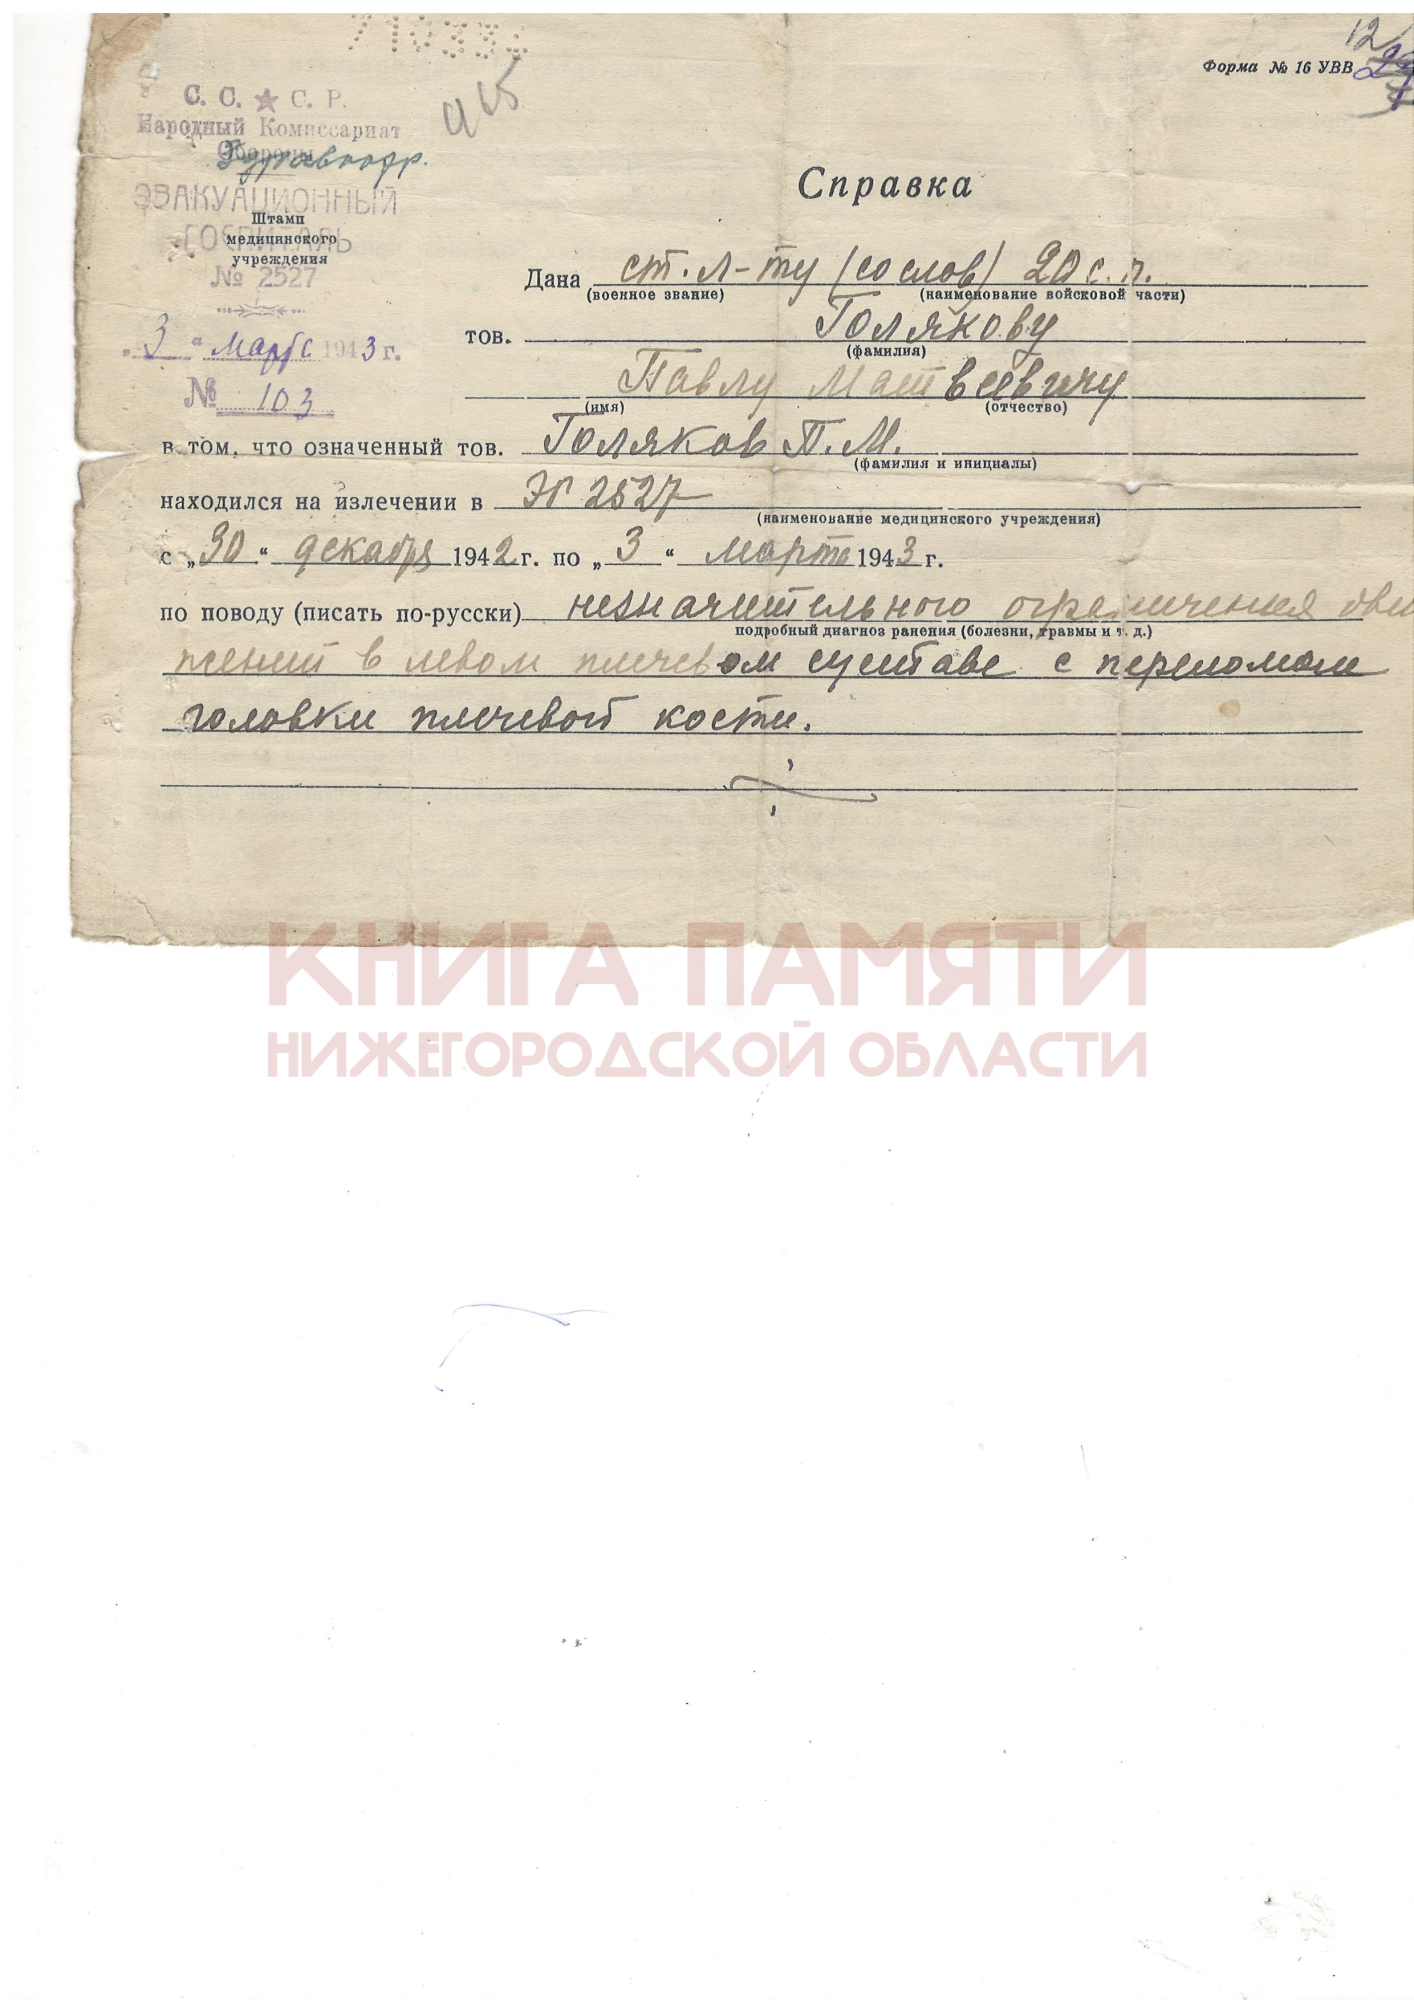 710334
12
Форма № 16 УВВ
С. С. С. Р.
Народный Комиссариат
Обороны
ЭВАКУАЦИОННЫЙ
ГОСПИТАЛЬ
№ 2527
Штамп
медицинского
учреждения
„3“ марта 1943 г.
№ 103
Справка
Дана ст. л-ту (со слов) 20 с. п.
(военное звание) (наименование войсковой части)
тов. Голякову
(фамилия)
Павлу Матвеевичу
(имя) (отчество)
в том, что означенный тов. Голяков П. М.
(фамилия и инициалы)
находился на излечении в ЭГ 2527
(наименование медицинского учреждения)
с „30“ декабря 1942 г. по „3“ марта 1943 г.
по поводу (писать по-русски) незначительного ограничения дви
подробный диагноз ранения (болезни, травмы и т. д.)
жений в левом плечевом суставе с переломом
головки плечевой кости.
КНИГА ПАМЯТИ
НИЖЕГОРОДСКОЙ ОБЛАСТИ